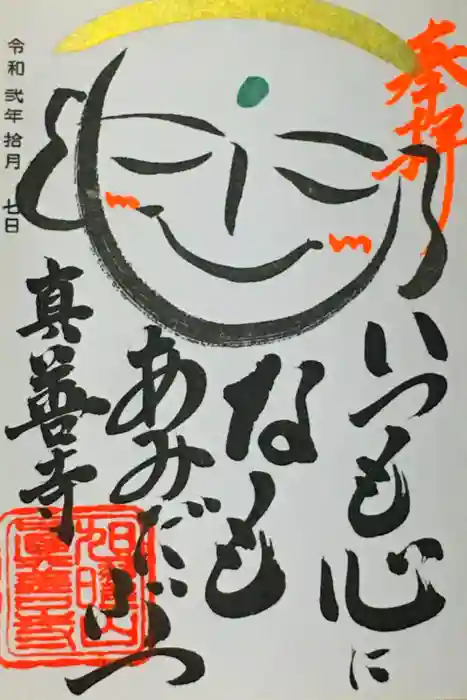 奉拝
いつも心に
なも
あみだぶつ
真善寺
令和 弐年 拾月 七日